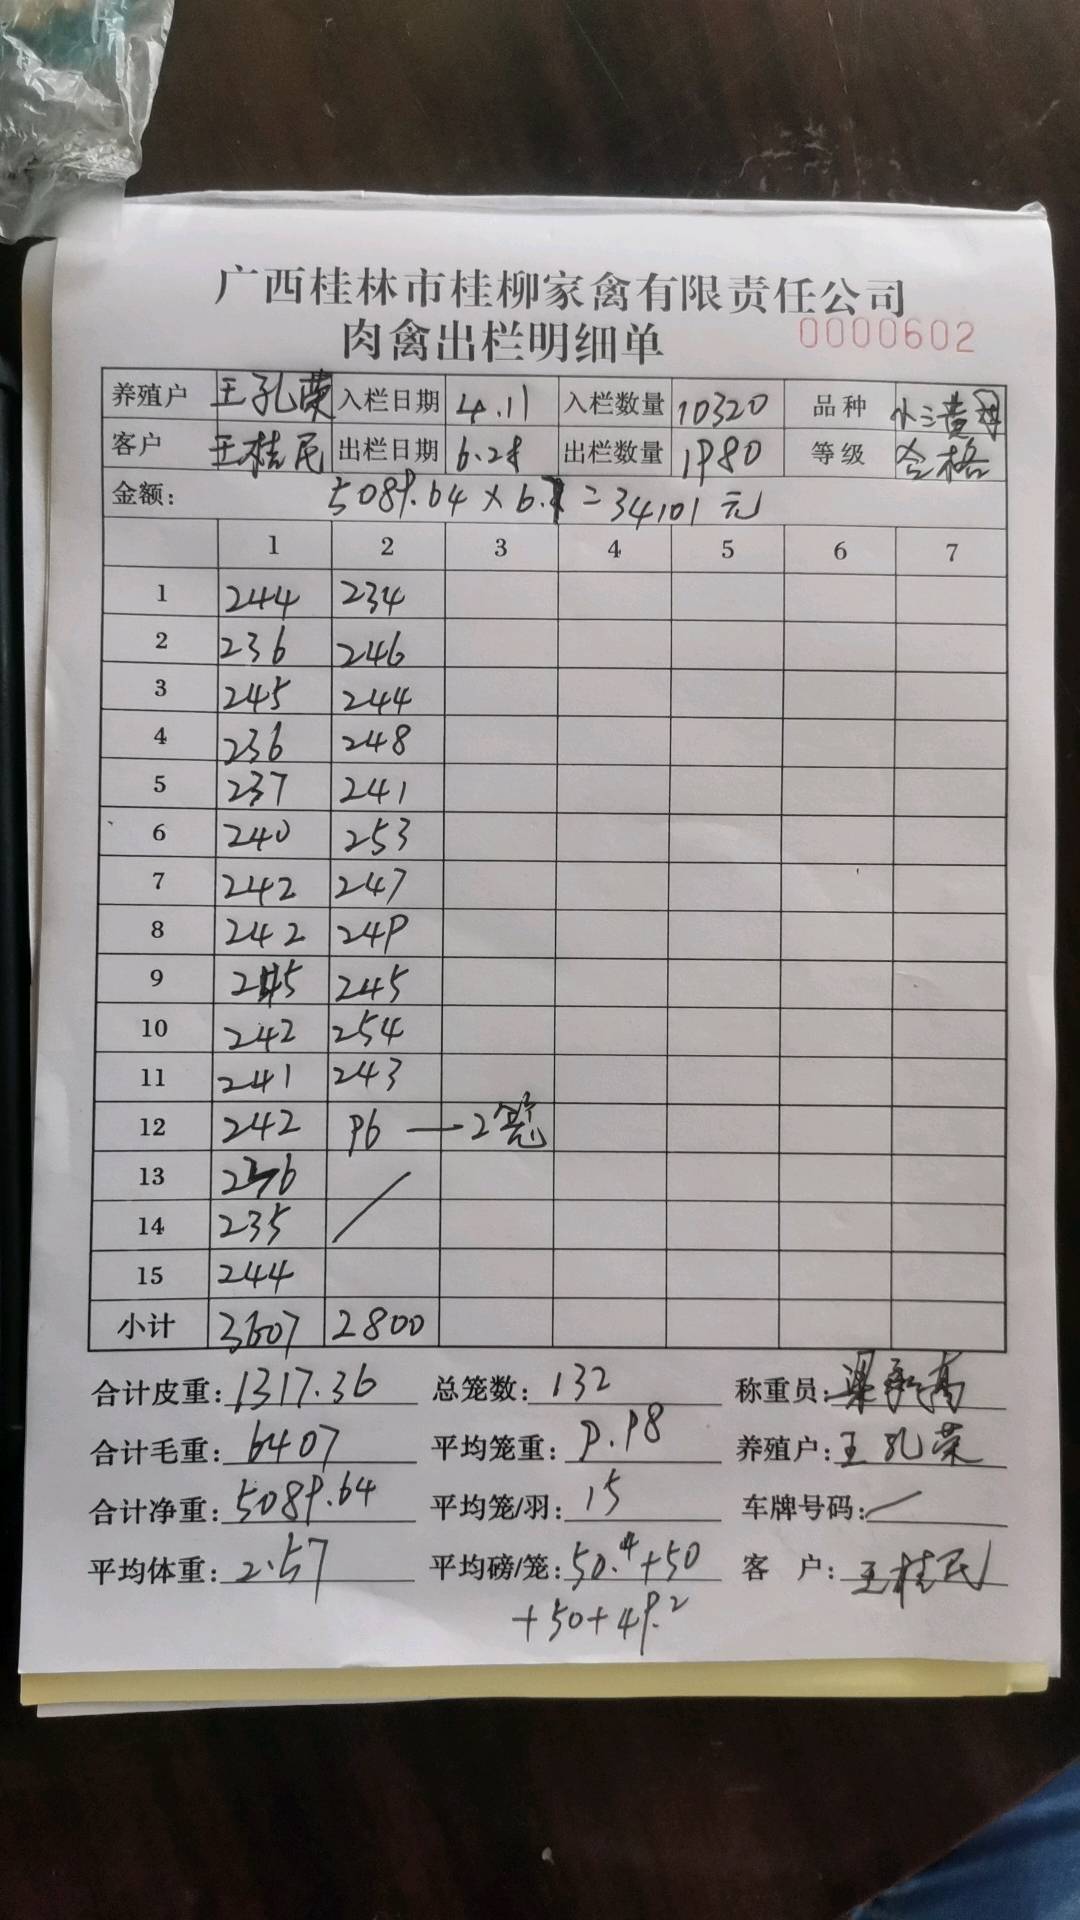 广西桂林市桂柳家禽有限责任公司
肉禽出栏明细单 0000602
养殖户 王孔荣 入栏日期 4.11 入栏数量 10320 品种 小三黄
客户 王桂民 出栏日期 6.28 出栏数量 1980 等级 合格
金额: 5089.64×6.7=34101元
1 2 3 4 5 6 7
1 244 234
2 236 246
3 245 244
4 236 248
5 237 241
6 240 253
7 242 247
8 242 249
9 245 245
10 242 254
11 241 243
12 242 96 — 2笼
13 236 /
14 235
15 244
小计 3607 2800
合计皮重: 1317.36 总笼数: 132 称重员: 梁 高
合计毛重: 6407 平均笼重: 9.98 养殖户: 王孔荣
合计净重: 5089.64 平均笼/羽: 15 车牌号码: /
平均体重: 2.57 平均磅/笼: 50.4+50 客户: 王桂民
+50+49.2